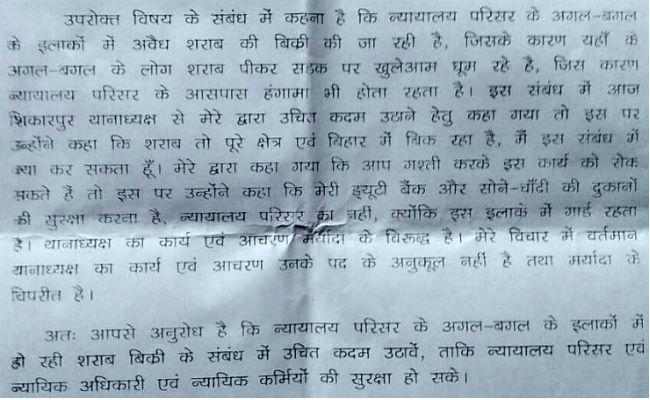 उपरोक्त विषय के संबंध में कहना है कि न्यायालय परिसर के अगल-बगल
के इलाकों में अवैध शराब की बिक्री की जा रही है, जिसके कारण यहाँ के
अगल-बगल के लोग शराब पीकर सड़क पर खुलेआम घूम रहे है, जिस कारण
न्यायालय परिसर के आसपास हंगामा भी होता रहता है। इस संबंध में आज
शिकारपुर थानाध्यक्ष से मेरे द्वारा उचित कदम उठाने हेतु कहा गया तो इस पर
उन्होंने कहा कि शराब तो पूरे क्षेत्र एवं बिहार में बिक रहा है, मैं इस संबंध में
क्या कर सकता हूँ। मेरे द्वारा कहा गया कि आप गश्ती करके इस कार्य को रोक
सकते हैं तो इस पर उन्होंने कहा कि मेरी ड्यूटी बैंक और सोने-चाँदी की दुकानों
की सुरक्षा करना है, न्यायालय परिसर का नहीं, क्योंकि इस इलाके में गार्ड रहता
है। थानाध्यक्ष का कार्य एवं आचरण मर्यादा के विरूद्ध है। मेरे विचार में वर्तमान
थानाध्यक्ष का कार्य एवं आचरण उनके पद के अनुकूल नहीं है तथा मर्यादा के
विपरीत है।
अतः आपसे अनुरोध है कि न्यायालय परिसर के अगल-बगल के इलाकों में
हो रही शराब बिक्री के संबंध में उचित कदम उठावें, ताकि न्यायालय परिसर एवं
न्यायिक अधिकारी एवं न्यायिक कर्मियों की सुरक्षा हो सके।